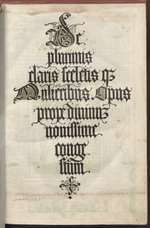 De
plurimis
claris sceletis qȝ
Mulieribus. Opus
prope diuinuȝ
nouissime
conge
stum.